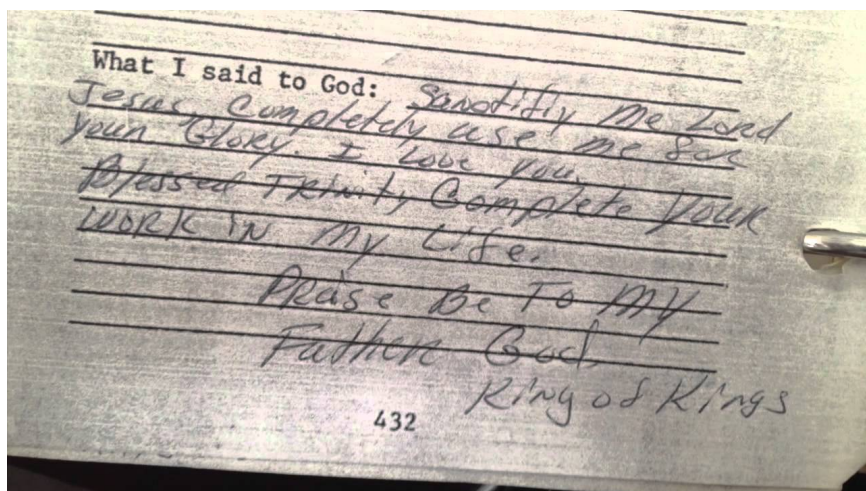 What I said to God: Sanctifiy Me Lord
Jesus Completely use me for
your Glory. I Love you.
Blessed Trinity Complete Your
WORK iN My Life.
PRaise Be To MY
Father God
King of Kings
432